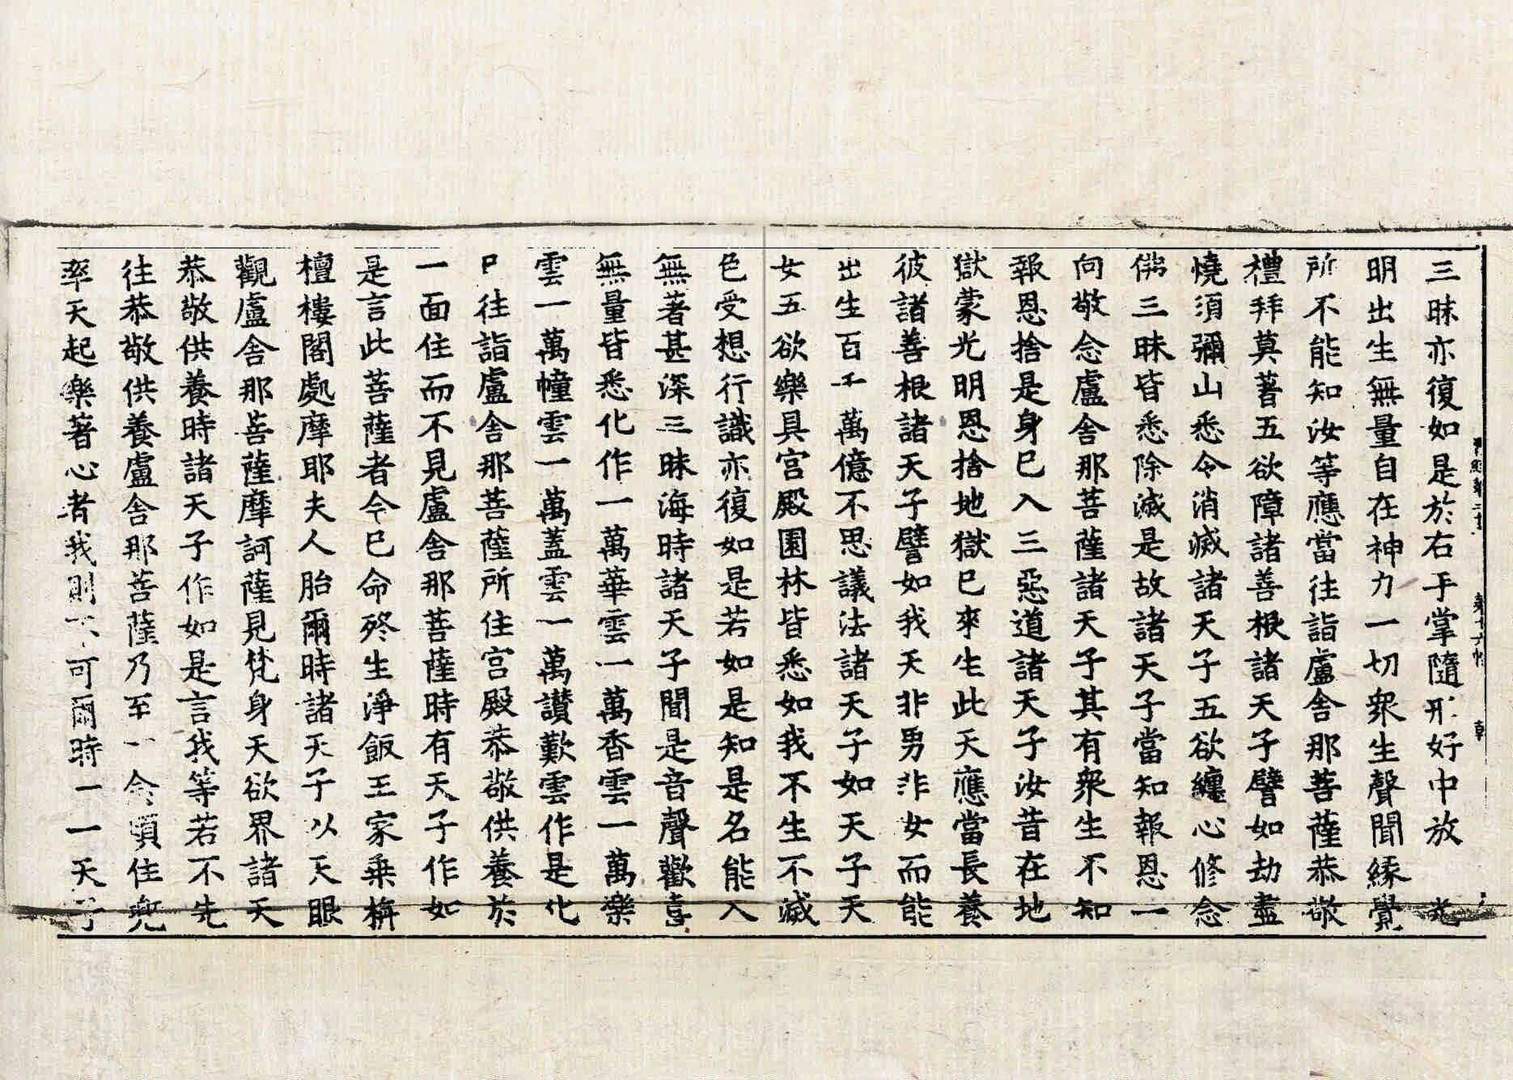 三昧亦復如是於右手掌隨形好中放光
明出生無量自在神力一切衆生聲聞緣覺
所不能知汝等應當往詣盧舍那菩薩恭敬
禮拜莫著五欲障諸善根諸天子譬如劫盡
燒須彌山悉令消滅諸天子五欲纏心修念
佛三昧皆悉除滅是故諸天子當知報恩一
向敬念盧舍那菩薩諸天子其有衆生不知
報恩捨是身已入三惡道諸天子汝昔在地
獄蒙光明恩捨地獄已來生此天應當長養
彼諸善根諸天子譬如我天非男非女而能
出生百千萬億不思議法諸天子如天子天
女五欲樂具宮殿園林皆悉如我不生不滅
色受想行識亦復如是若如是知是名能入
無著甚深三昧海時諸天子聞是音聲歡喜
無量皆悉化作一萬華雲一萬香雲一萬樂
雲一萬幢雲一萬蓋雲一萬讃歎雲作是化
已往詣盧舍那菩薩所住宮殿恭敬供養於
一面住而不見盧舍那菩薩時有天子作如
是言此菩薩者今已命終生淨飯王家乘栴
檀樓閣處摩耶夫人胎爾時諸天子以天眼
觀盧舍那菩薩摩訶薩見梵身天欲界諸天
恭敬供養時諸天子作如是言我等若不先
往恭敬供養盧舍那菩薩乃至一念頃住兜
率天起樂著心者我則不可爾時一一天子